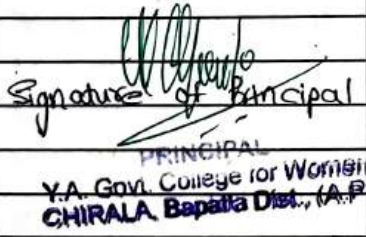 Signature of Principal
PRINCIPAL
Y.A. Govt. College for Women
CHIRALA, Bapatla Dist., (A.P